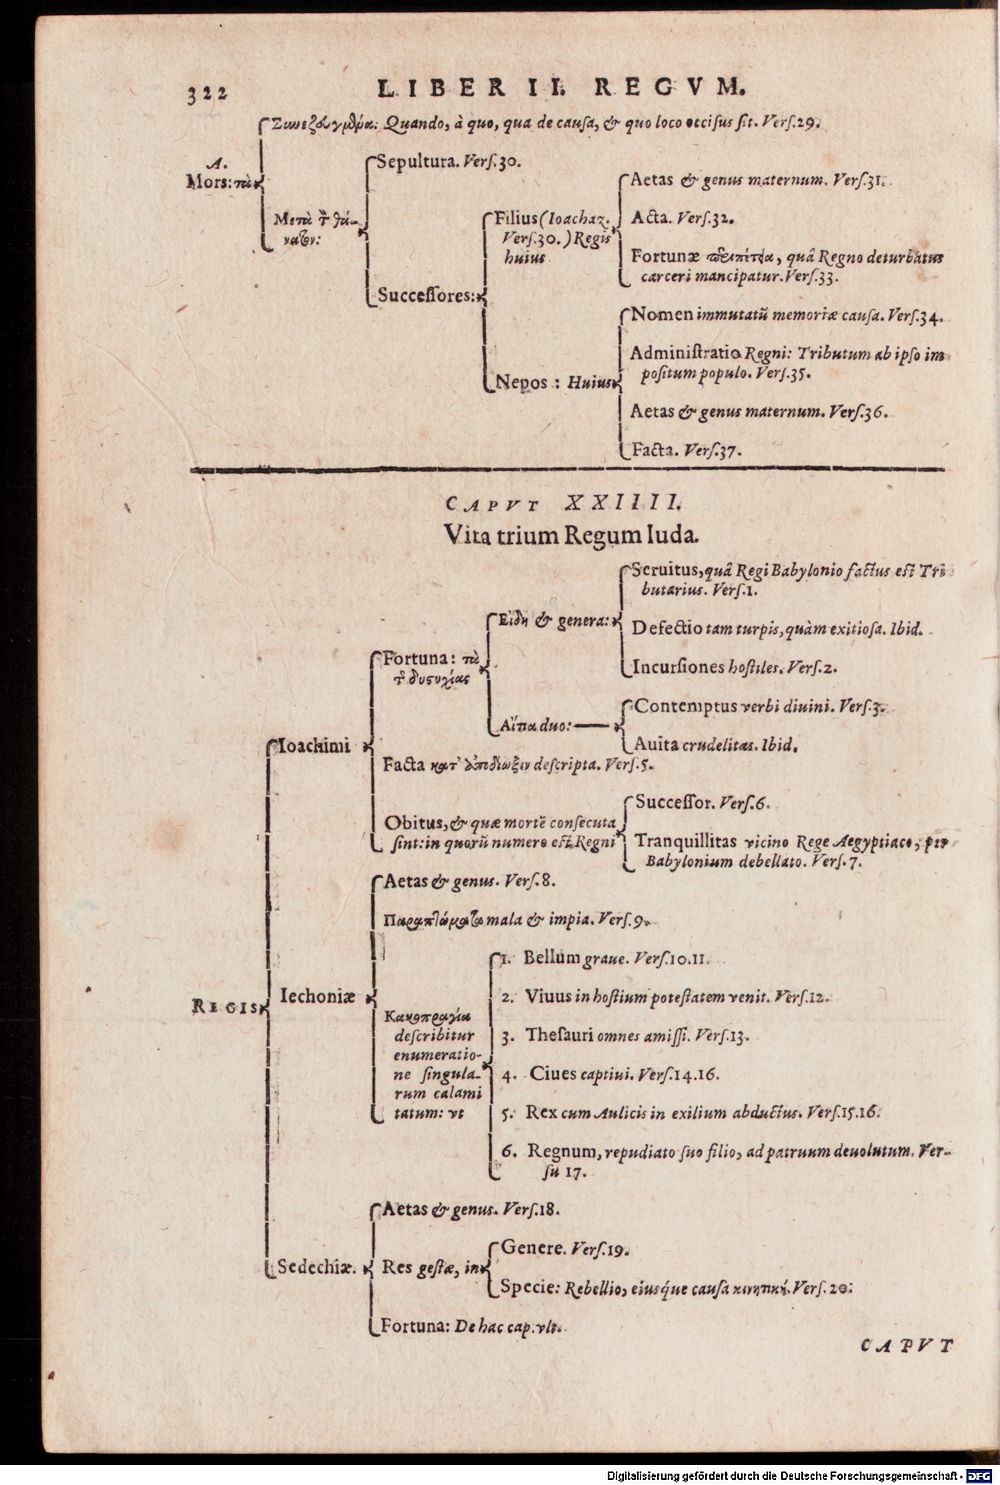 322 LIBER II. REGVM.
Συνεζευγμένα: Quando, à quo, qua de causa, & quo loco occisus sit. Vers.29.
A.
Mors: τὰ
Sepultura. Vers.30.
Μετὰ τ̃ θά-
νατον:
Successores:
Filius (Ioachaz.
Vers.30.) Regis
huius
Aetas & genus maternum. Vers.31.
Acta. Vers.32.
Fortunæ περιπέτεια, quâ Regno deturbatus
carceri mancipatur. Vers.33.
Nepos: Huius
Nomen immutatũ memoriæ causa. Vers.34.
Administratio Regni: Tributum ab ipso im
positum populo. Vers.35.
Aetas & genus maternum. Vers.36.
Facta. Vers.37.
CAPVT XXIIII.
Vita trium Regum Iuda.
REGIS
Ioachimi
Fortuna: τὰ
τ̃ δυςυχίας
Εἴδη & genera:
Seruitus, quâ Regi Babylonio factus est Tri
butarius. Vers.1.
Defectio tam turpis, quàm exitiosa. Ibid.
Incursiones hostiles. Vers.2.
Αἴτια duo:
Contemptus verbi diuini. Vers.3.
Auita crudelitas. Ibid.
Facta κατ' descripta. Vers.5.
Obitus, & quæ mortẽ consecuta
sint: in quorũ numero est Regni
Successor. Vers.6.
Tranquillitas vicino Rege Aegyptiaco, per
Babylonium debellato. Vers.7.
Iechoniæ
Aetas & genus. Vers.8.
Παραπτώματα mala & impia. Vers.9.
Κακοπραγία
describitur
enumeratio-
ne singula-
rum calami
tatum: vt
1. Bellum graue. Vers.10.11.
2. Viuus in hostium potestatem venit. Vers.12.
3. Thesauri omnes amissi. Vers.13.
4. Ciues captiui. Vers.14.16.
5. Rex cum Aulicis in exilium abductus. Vers.15.16.
6. Regnum, repudiato suo filio, ad patruum deuolutum. Ver-
su 17.
Sedechiæ.
Aetas & genus. Vers.18.
Res gestæ, in
Genere. Vers.19.
Specie: Rebellio, eiusq́ue causa κινητική. Vers.20.
Fortuna: De hac cap. vlt.
CAPVT
Digitalisierung gefördert durch die Deutsche Forschungsgemeinschaft - DFG